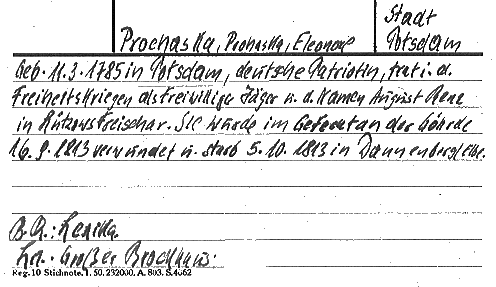 Stadt
Prochaska, Prohaska, Eleonore Potsdam
Geb. 11.3.1785 in Potsdam, deutsche Patriotin, trat i. d.
Freiheitskriegen als freiwilliger Jäger u. d. Namen August Renz
in Lützows Freischar. Sie wurde im Gefecht an der Göhrde
16.9.1813 verwundet u. starb 5.10.1813 in Dannenberg/Elbe.
Lexika
Großer Brockhaus.
Reg. 10 Stichnote. 1. 50. 232000. A. 803. S. 4662